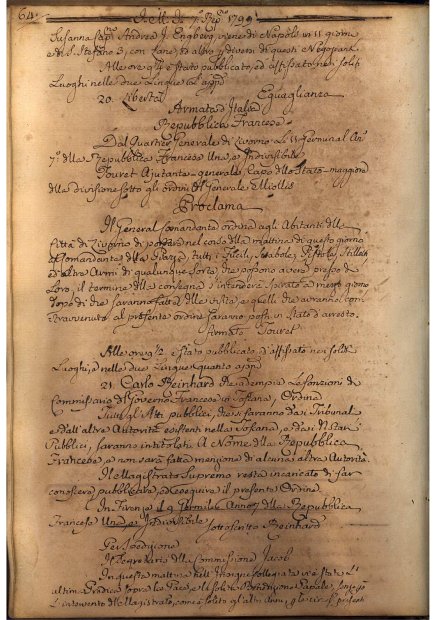 64.
1799
Susanna Cap. Andrea J. Engberg viene di Napoli in 11 giorni
e di S. Stefano 3, con Lane, ed altro p diversi di questi Negozianti
Alle ore 9¼ è stato pubblicato, ed affissato nei soliti
Luoghi nelle due Lingue
20. Libertà Eguaglianza
Armata d'Italia
Repubblica Francese
Dal Quartier Generale di Livorno Germinal An
7.° della Repubblica Francese Una, e Indivisibile
Touret Ajutante-generale Capo dello Stato-maggiore
della divisione sotto gli ordini del Generale Miollis
Proclama
Il General Comandante ordina agli Abitanti della
Città di Livorno di portare nel corso della mattina di questo giorno
al Comandante della Piazza, tutti i Fucili, Sciabole, Pistole, Stiletti
ed altre Armi di qualunque sorta che possono avere presso di
Loro, il termine della consegna s'intenderà spirato a mezzo giorno
dopo di che saranno fatte delle visite, e quelli che avranno con-
travvenuto al presente ordine saranno posti in stato d'arresto.
Firmato Touret
Alle ore 9½ è stato pubblicato, ed affissato nei soliti
Luoghi, e nelle due Lingue quanto appo
21. Carlo Reinhard che adempie le funzioni di
Commissario del Governo Francese in Toscana, Ordina
Tutti gli Atti pubblici, che si faranno da i Tribunali
e dall'altre Autorità esistenti nella Toscana, e
Pubblici, saranno intitolati A Nome della Repubblica
Francese, e non sarà fatta menzione di alcun'altra Autorità.
Il Magistrato Supremo resta incaricato di far
conoscere, pubblicare, ed eseguire il presente Ordine.
In Firenze il 9 Germile Anno 7 della Repubblica
Francese Una, e Indivisibile
sottoscritto Reinhard
Per Spedizione
Il Segretario della Commissione Jacob
In questa mattina nell'Insigne Collegiata v'è stata l'
altra Predica sopra la Pace, e la solita Benedizione Papale,
l'intervento del Magistrato, com'è solito gli altri Anni,